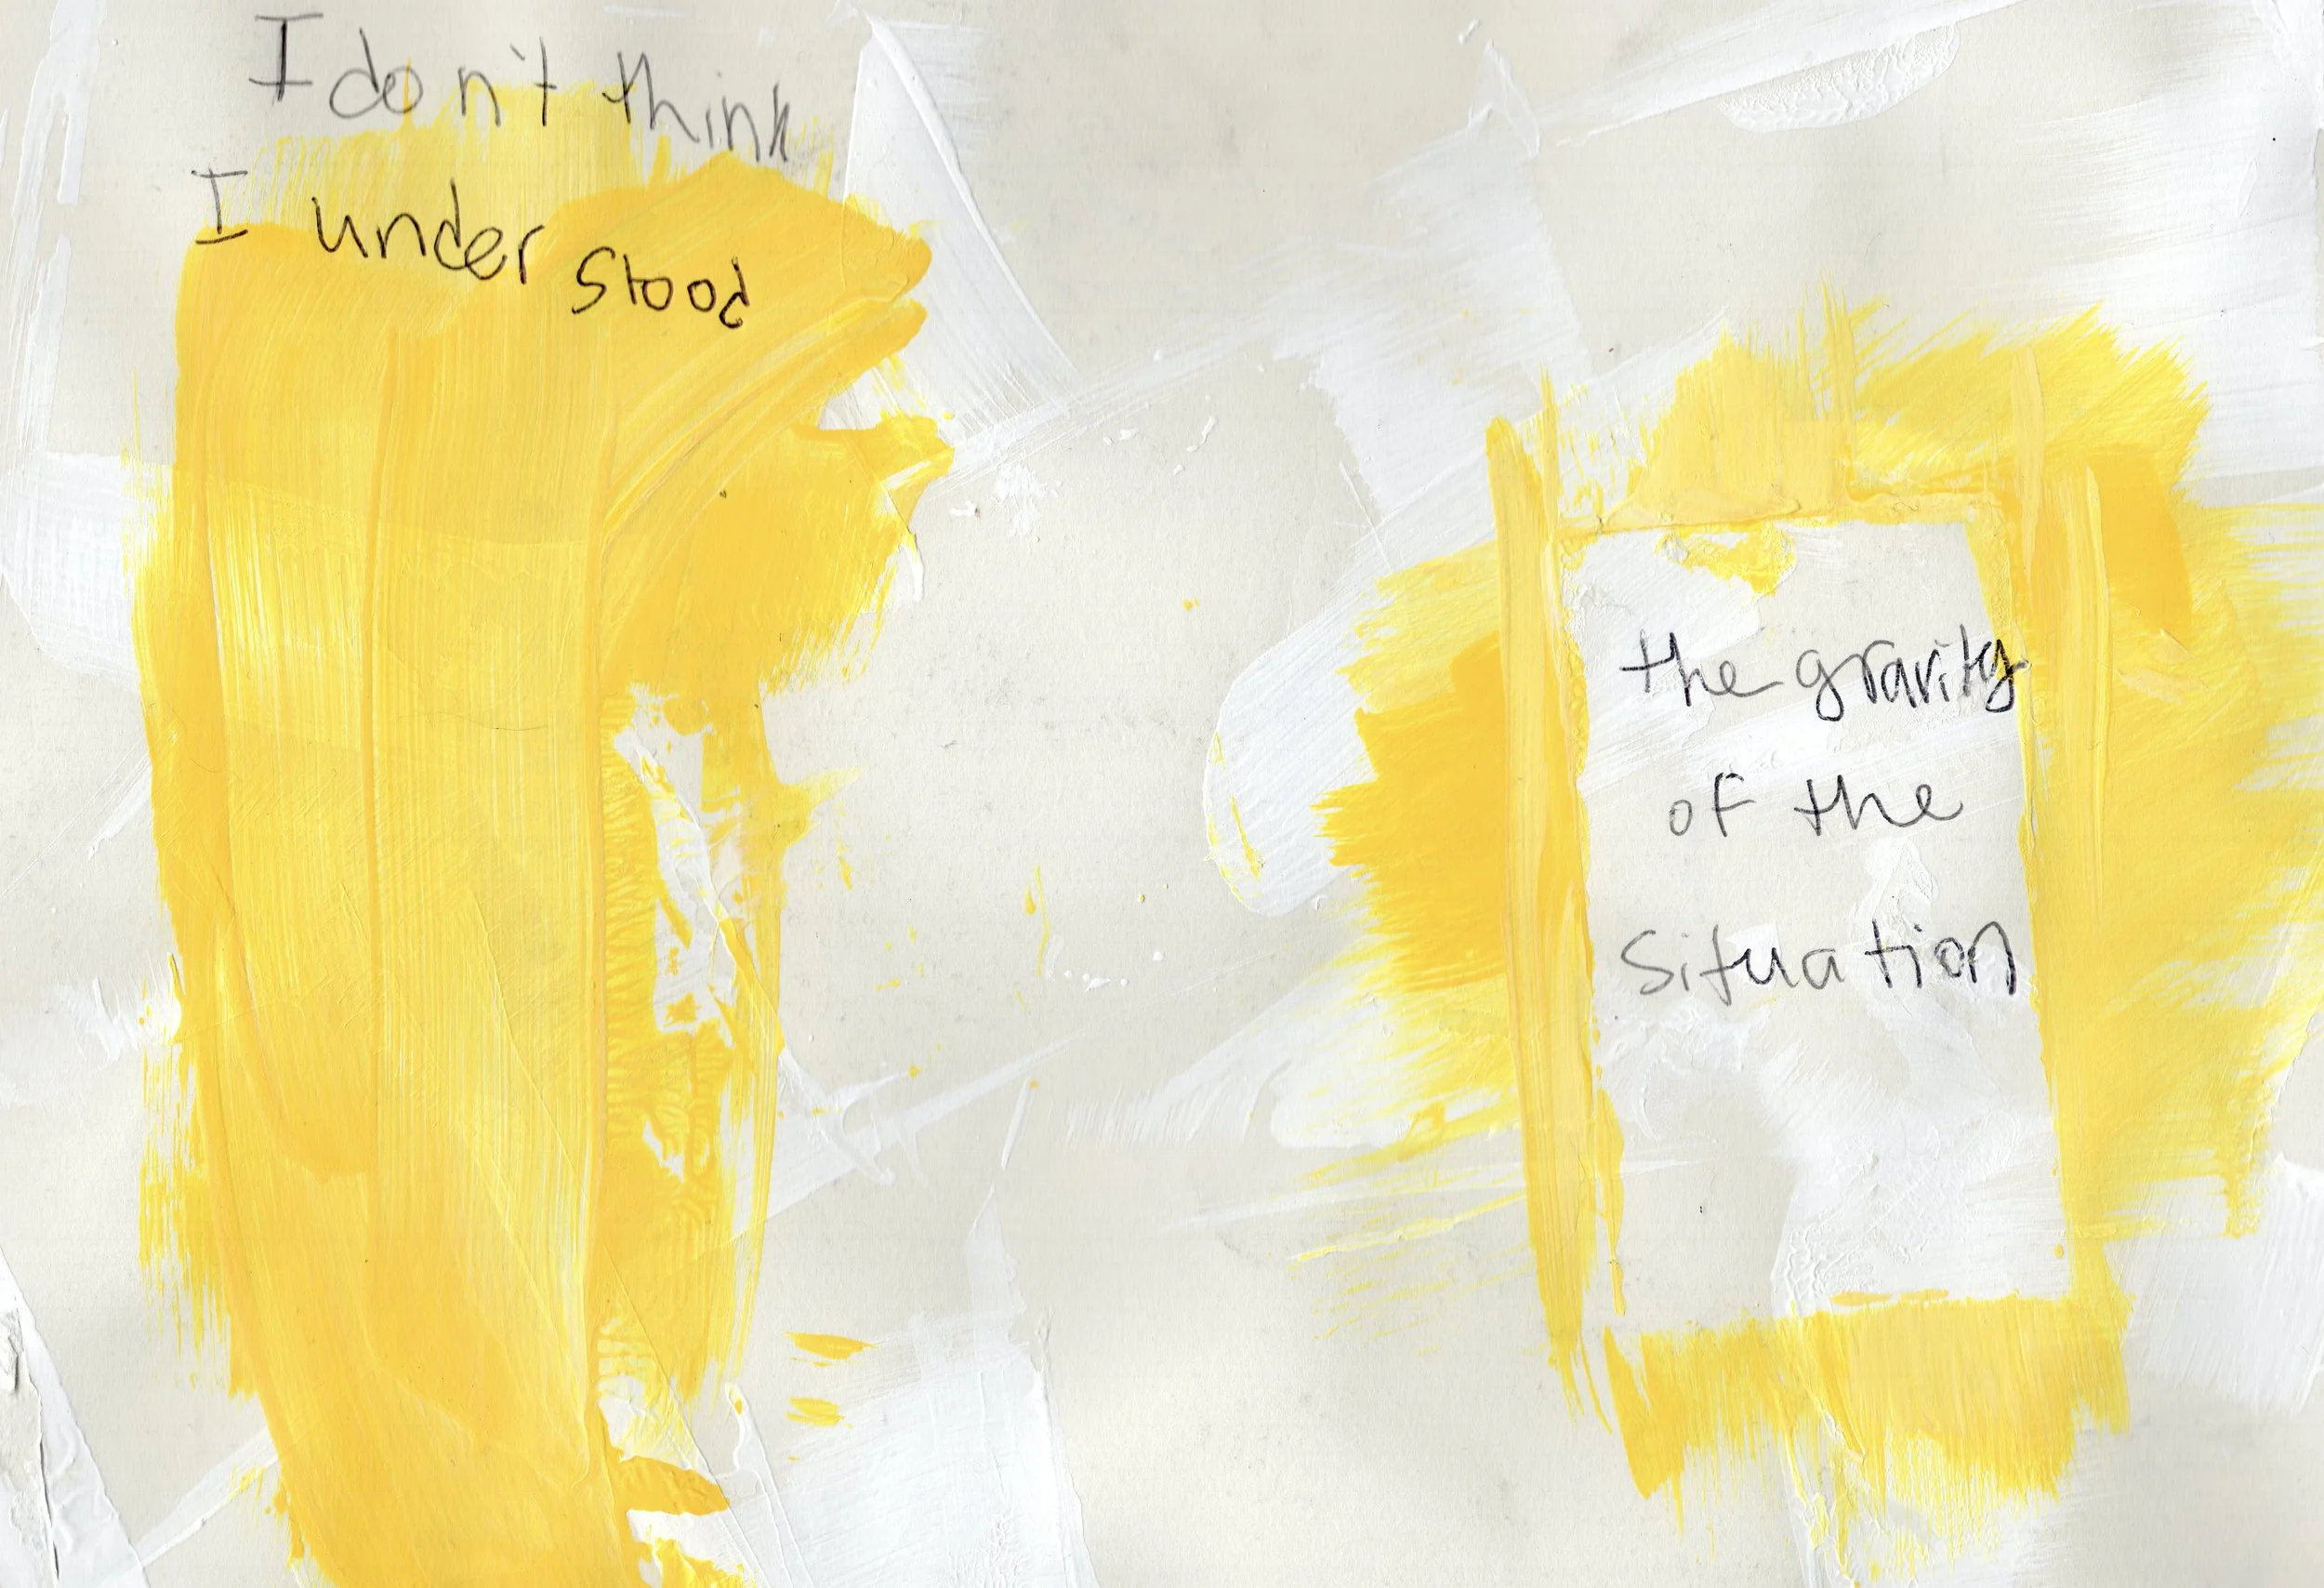 I don't think
I under stood
the gravity
of the
situation